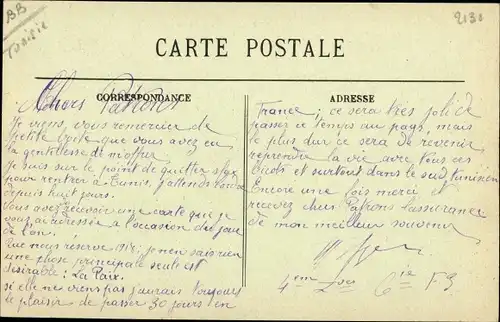 BB
Tunisie
2130
CARTE POSTALE
CORRESPONDANCE
ADRESSE
Chers Patrons
Je viens, vous remercier de
petite boite que vous avez eu
la gentillesse de m'offrir.
Je suis sur le point de quitter Sfax
pour rentrer à Tunis, j'attends
depuis huit jours.
Vous avez recevoir une carte que je
vous ai adressée à l'occasion du jour
de l'an.
Que nous reserve je n'en sais rien
une chose principale seule est
désirable: La Paix.
si elle ne viens pas j'aurais toujours
le plaisir de passer 30 jours en
France; ce sera très joli de
passer ce temps au pays, mais
le plus dur ce sera de revenir
reprendre la vie avec tous ces
Bicots et surtout dans le sud tunisien
Encore une fois merci et
recevez chers Patrons l'assurance
de mon meilleur souvenir
4em 6ie